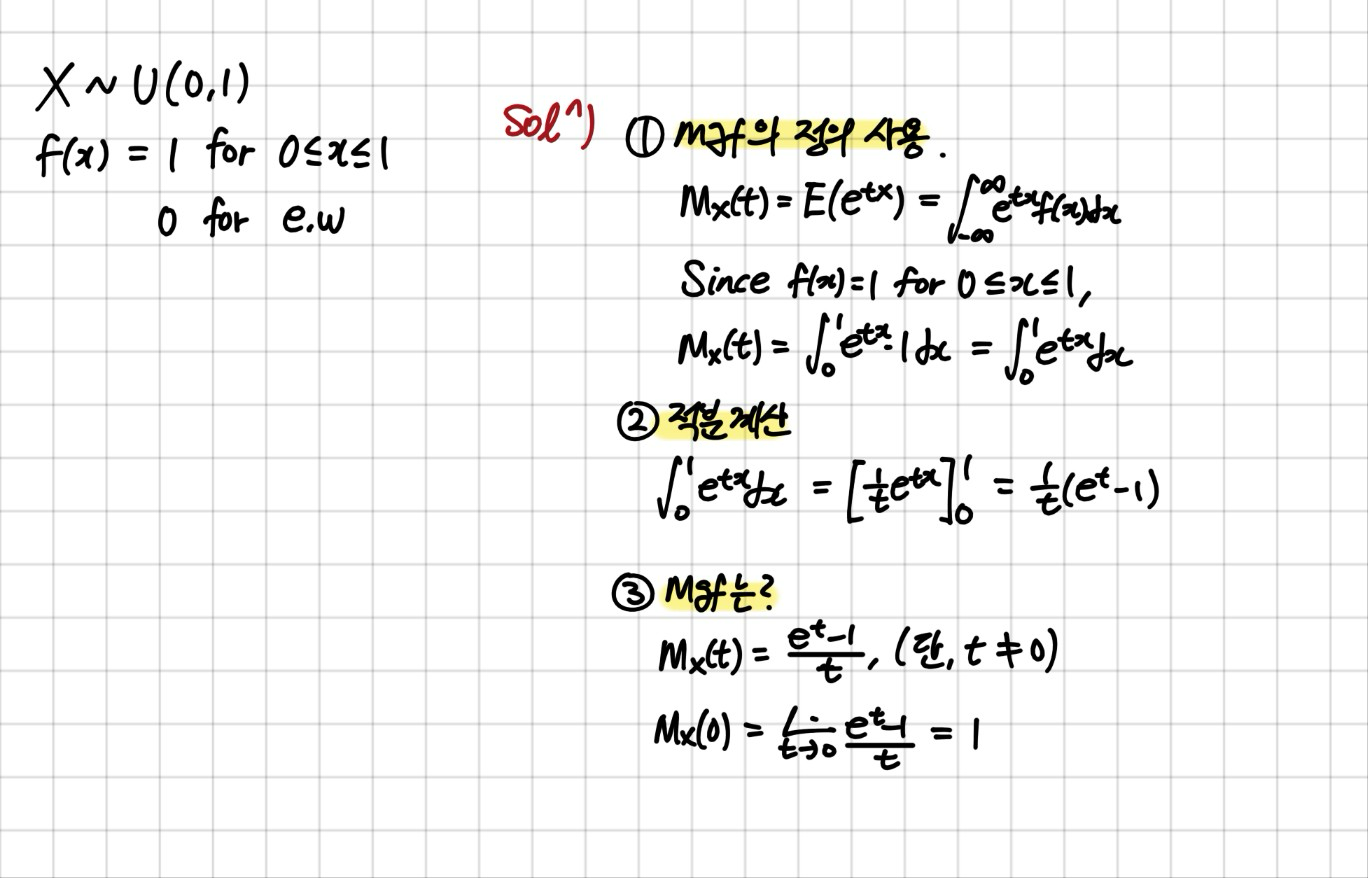 X ~ U(0,1)
f(x) = 1 for 0≤x≤1
0 for e.w
Sol^)
① mgf의 정의 사용.
Mx(t) = E(e^tx) = ∫_-∞^∞ e^tx f(x)dx
Since f(x)=1 for 0≤x≤1,
Mx(t) = ∫_0^1 e^tx·1dx = ∫_0^1 e^tx dx
② 적분계산
∫_0^1 e^tx dx = [1/t e^tx]_0^1 = 1/t(e^t-1)
③ Mgf는?
Mx(t) = (e^t-1)/t, (단, t≠0)
Mx(0) = lim_t→0 (e^t-1)/t = 1